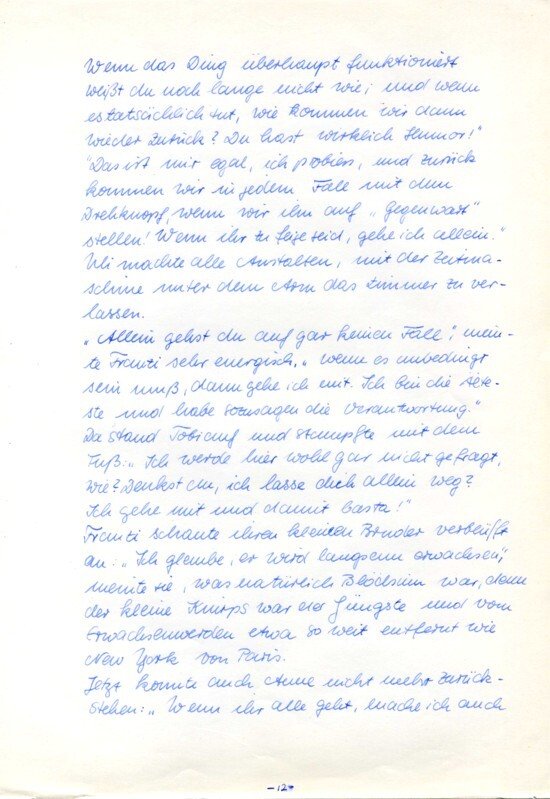 Wenn das Ding überhaupt funktioniert
weißt du noch lange nicht wie; und wenn
es tatsächlich tut, wie kommen wir dann
wieder zurück? Du hast wirklich Humor!"
"Das ist mir egal, ich probiers, und zurück
kommen wir in jedem Fall mit dem
Drehknopf, wenn wir ihn auf „Gegenwart"
stellen! Wenn ihr zu feige seid, gehe ich allein."
Uli machte alle Anstalten, mit der Zeitma-
schine unter dem Arm das Zimmer zu ver-
lassen.
„Allein gehst du auf gar keinen Fall", mein-
te Franzi sehr energisch, „wenn es unbedingt
sein muß, dann gehe ich mit. Ich bin die Älte-
ste und habe sozusagen die Verantwortung."
Da stand Tobi auf und stampfte mit dem
Fuß: „Ich werde hier wohl gar nicht gefragt,
wie? Denkst du, ich lasse dich allein weg?
Ich gehe mit und damit basta!"
Franzi schaute ihren kleinen Bruder verblüfft
an: „Ich glaube, er wird langsam erwachsen",
meinte sie, was natürlich Blödsinn war, denn
der kleine Knirps war der Jüngste und vom
Erwachsenwerden etwa so weit entfernt wie
New York von Paris.
Jetzt konnte auch Anne nicht mehr zurück-
stehen: „Wenn ihr alle geht, mache ich auch
-12-